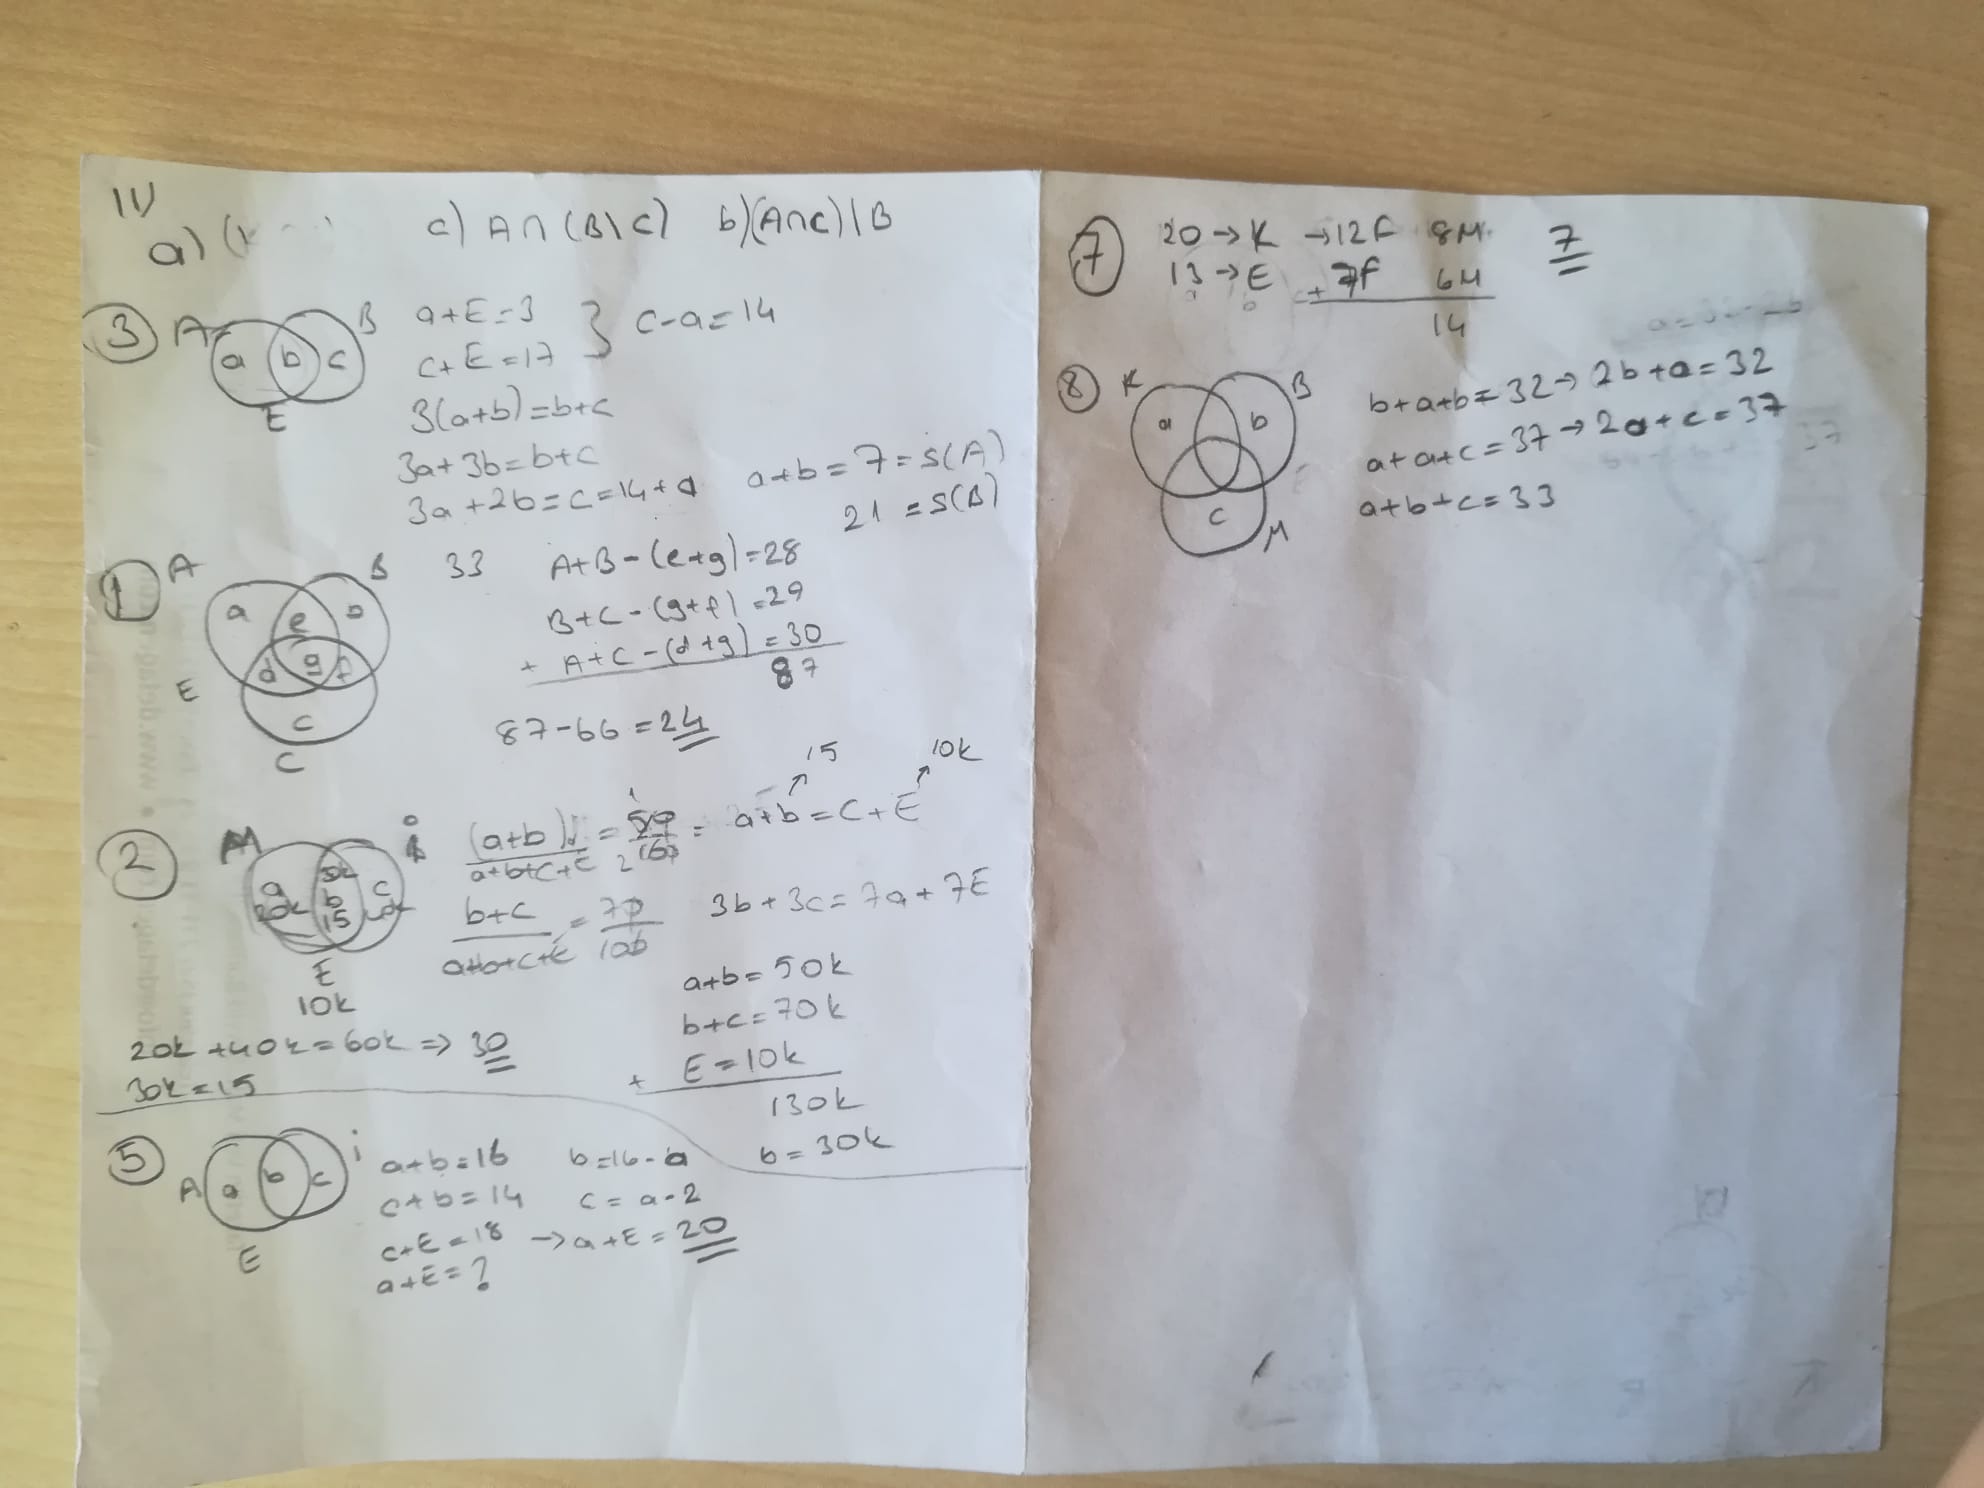 IV
a) (
c) A∩(B\C) b)(A∩C)\B
③ A B
a b c
E
a+E=3
c+E=17
} c-a=14
3(a+b)=b+c
3a+3b=b+c
3a+2b=c=14+a
a+b=7=s(A)
21=s(B)
① A B
a e b
d g f
c
E
C
33
A+B-(e+g)=28
B+C-(g+f)=29
+ A+C-(d+g)=30
87
87-66=24
② M i
a 20k b 15 c
E
10k
(a+b)
a+b+c+E
= a+b=c+E
15
10k
b+c
a+b+c+E
= 70
100
3b+3c=7a+7E
a+b=50k
b+c=70k
+ E=10k
130k
b=30k
20k+40k=60k⇒30
30k=15
⑤ A i
a b c
E
a+b=16 b=16-a
c+b=14 c=a-2
c+E=18 →a+E=20
a+E=?
⑦ 20→K→12F 8M 7
13→E + 7F 6M
14
⑧ K B
a b
c
M
b+a+b=32→2b+a=32
a+a+c=37→2a+c=37
a+b+c=33